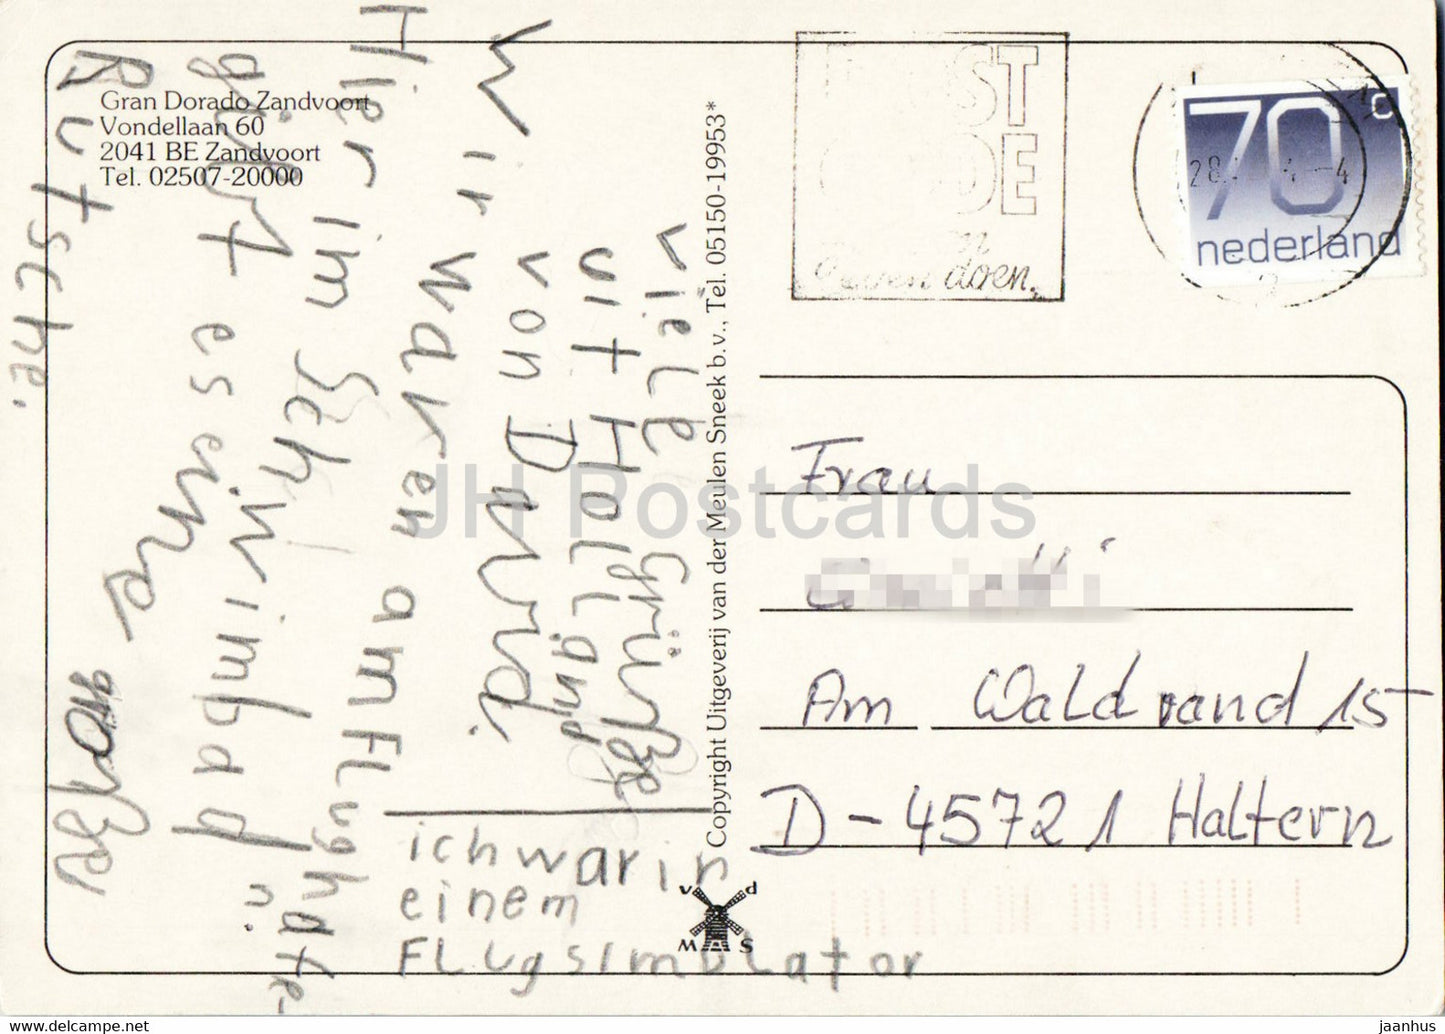 Gran Dorado Zandvoort
Vondellaan 60
2041 BE Zandvoort
Tel. 02507-20000
Viele Grüße
uit Holland
von David.
Wir waren am Flughafe-
n.
Hier im Schwimbad
gibt es eine
große
Rutsche.
ich war in
einem
Flugsimulator
Copyright Uitgeverij van der Meulen Sneek b.v., Tel. 05150-19953*
v d
M S
POST
CODE
doen.
70c
nederland
28
4
Frau
Am Waldrand 15
D-45721 Haltern
JH Postcards
jaanhus — https://www.ebay.com/usr/jaanhus